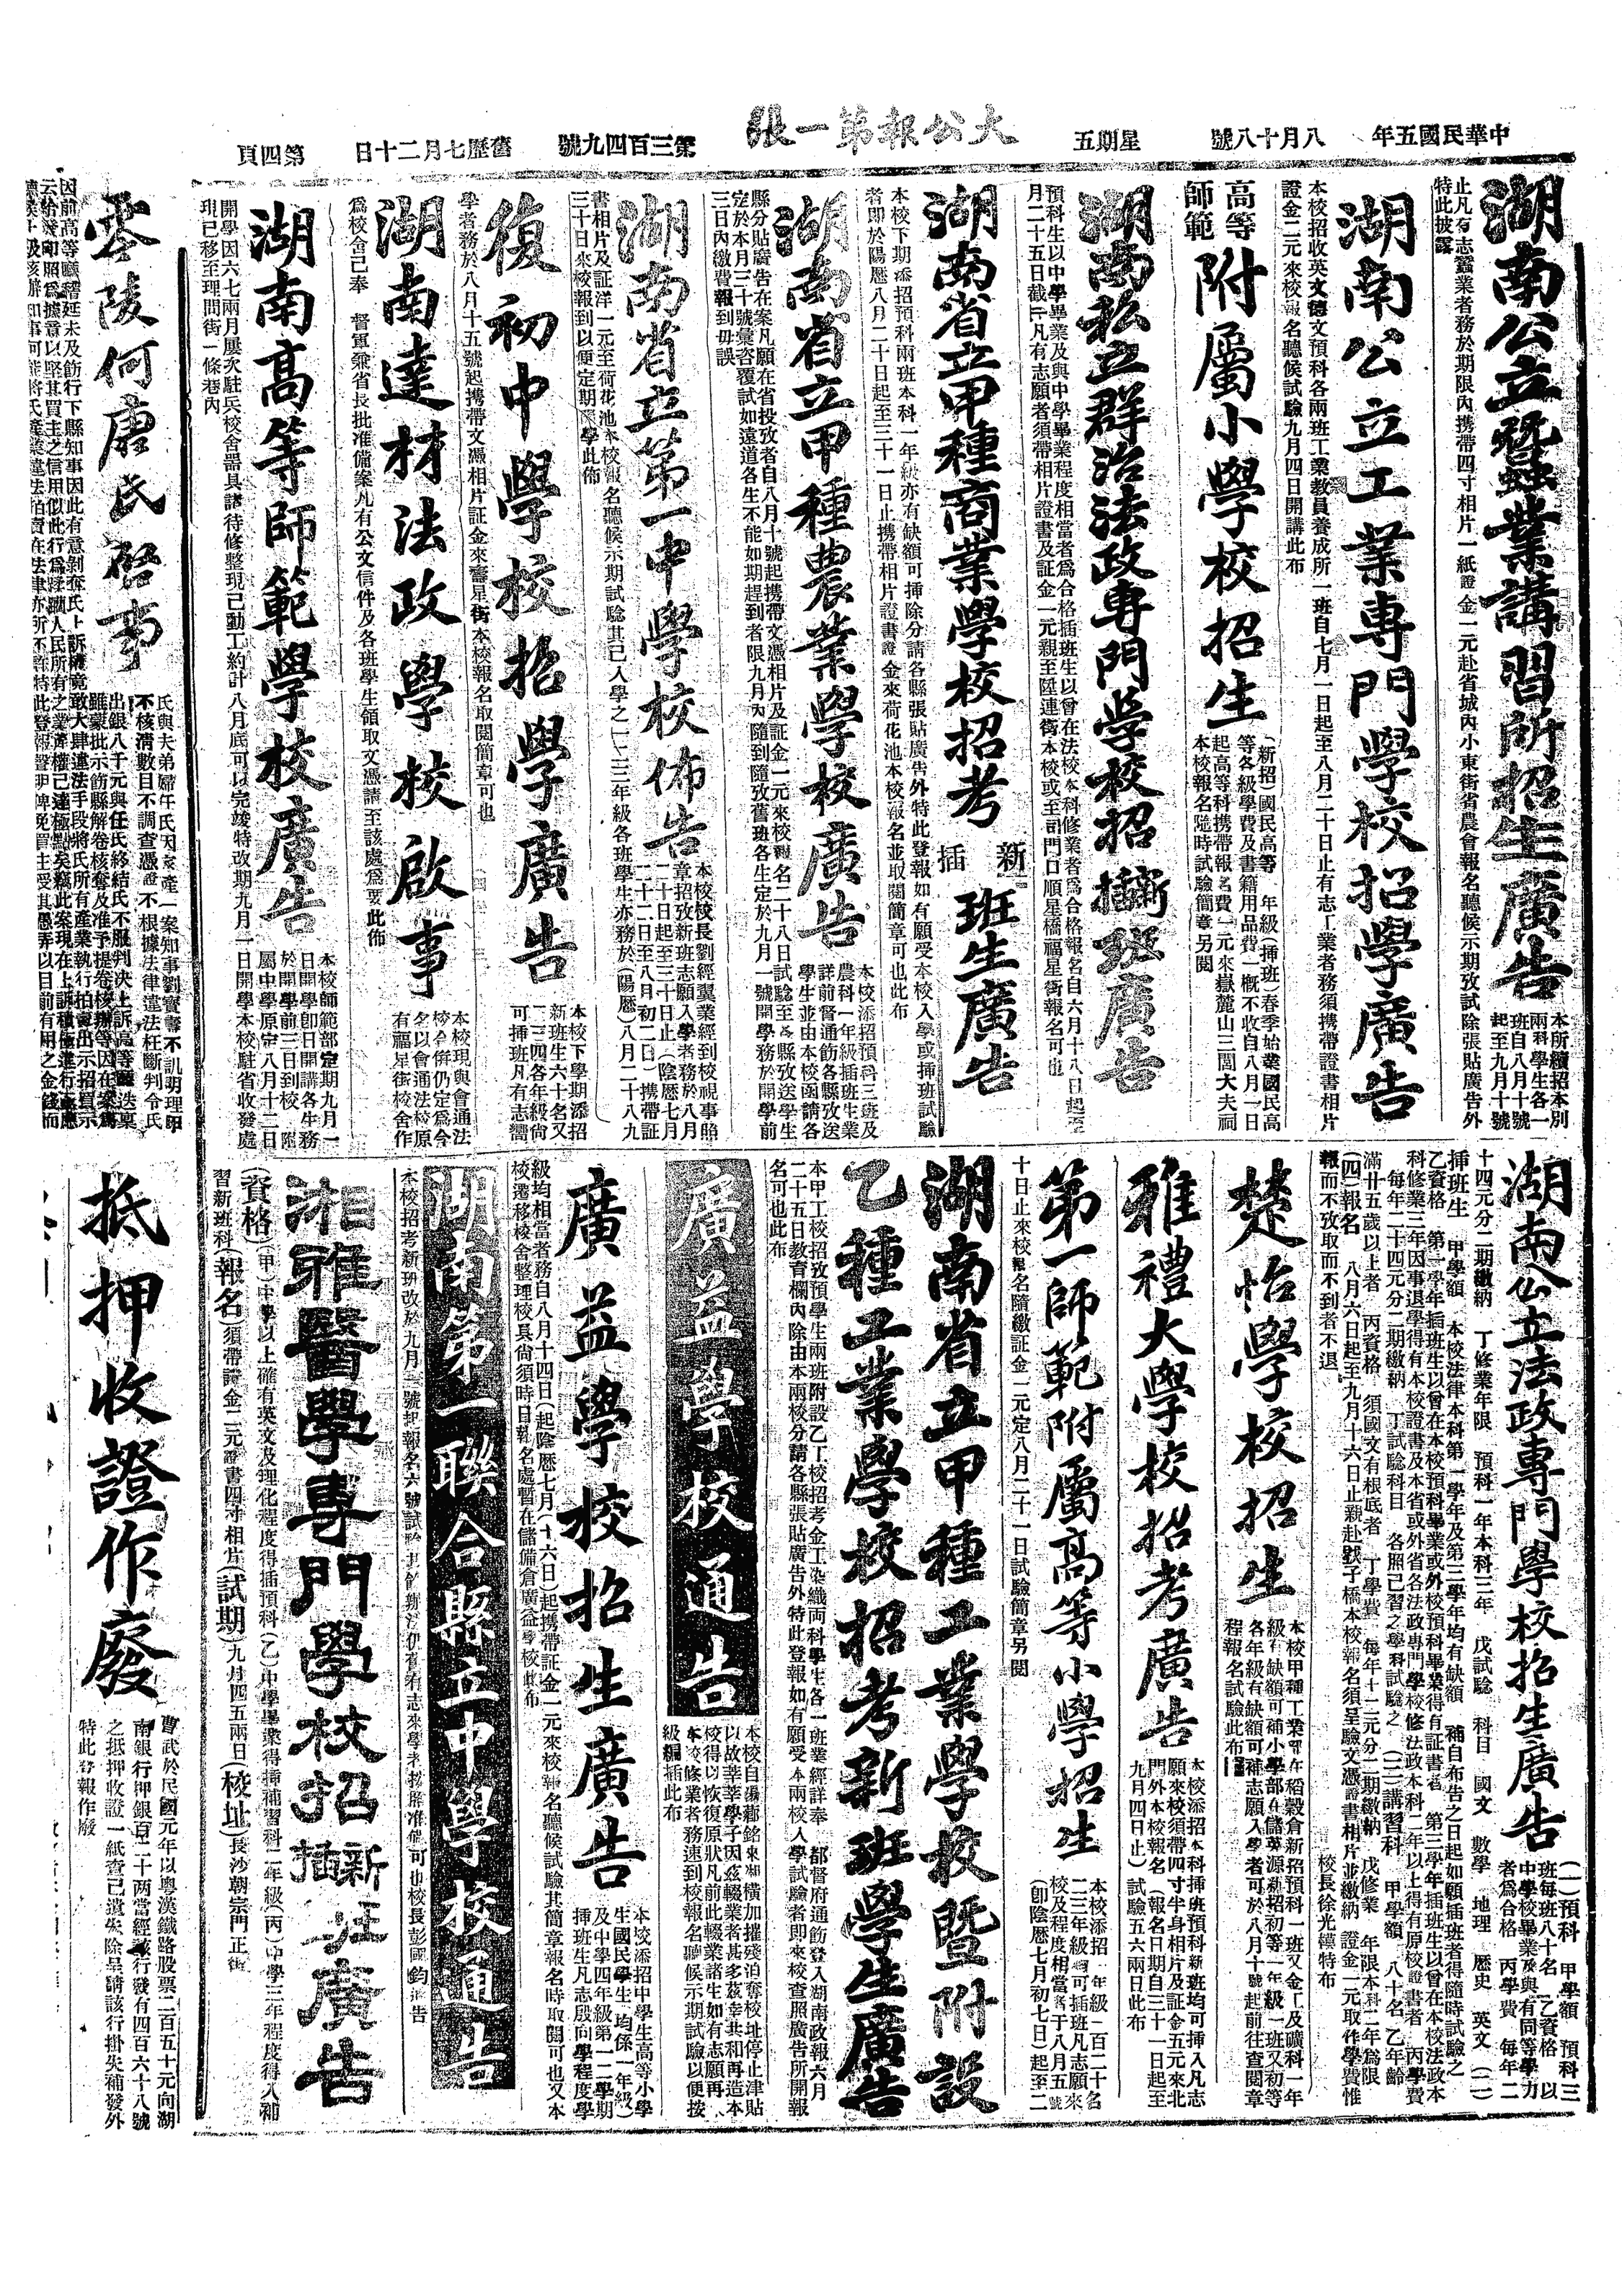 中華民國五年
八月十八號
星期五
大公報第一張
第三百四九號
舊歷七月二十日
第四頁
湖南公立蠶業講習所招生廣告
本所續招本別
兩科學生各一
班自八月十號
起至九月十號
止凡有志蠶業者務於期限內携帶四寸相片一紙證金一元赴省城內小東街省農會報名聽候示期攷試除張貼廣告外
特此披露
湖南公立工業專門學校招學廣告
本校招收英文德文預科各兩班工業教員養成所一班自七月一日起至八月二十日止有志工業者務須携帶證書相片
證金二元來校報名聽候試驗九月四日開講此布
高等
師範
附屬小學校招生
(新招)國民高等一年級(挿班)春季始業國民高
等各級學費及書籍用品費一概不收自八月一日
起高等科携帶報名費一元來嶽麓山三閭大夫祠
本校報名隨時試驗簡章另閱
湖南私立群治法政專門學校招新插班廣告
預科生以中學畢業及與中學畢業程度相當者爲合格插班生以曾在法校本科修業者爲合格報名自六月十八日起至
月二十五日截止凡有志願者須帶相片證書及証金一元親至隍連街本校或至司門口順星橋福星街報名可也
湖南省立甲種商業學校招考
新插
班生廣告
本校下期添招預科兩班本科一年級亦有缺額可挿除分請各縣張貼廣告外特此登報如有願受本校入學或挿班試驗
者即於陽歷八月二十日起至三十一日止携帶相片證書證金來荷花池本校報名並取閱簡章可也此布
湖南省立甲種農業學校廣告
本校添招預科三班及
農科一年級插班生業
詳前督通飭各縣攷送
學生並由本校函請各
縣分貼廣告在案凡願在省投攷者自八月十號起携帶文憑相片及証金一元來校報名二十八日試驗至各縣攷送學生
定於本月三十號彙咨覆試如遠道各生不能如期趕到者限九月內隨到隨攷舊班各生定於九月一號開學務於開學前
三日內繳費報到毋誤
湖南省立第一中學校佈告
本校校長劉經翼業經到校視事照
章招攷新班志願入學者務於八月
二十日起至三十日止(陰歷七月
二十二日至八月初二日)携帶証
書相片及証洋一元至荷花池本校報名聽候示期試驗其已入學之一二三年級各班學生亦務於(陽歷)八月二十八九
三十日來校報到以便定期開學此佈
復初中學校招學廣告
本校下學期添招
新班生六十名又
二三四各年級尚
可挿班凡有志嚮
學者務於八月十五號起携帶文憑相片証金來壽星街本校報名取閱簡章可也
湖南達材法政學校啟事
本校現與會通法
校合倂仍定爲今
名以會通法校原
有福星街校舍作
爲校舍已奉 督軍兼省長批准備案凡有公文信件及各班學生領取文憑請至該處爲要此佈
湖南高等師範學校廣告
本校師範部定期九月一
日開學卽日開講各生務
於開學前三日到校 附
屬中學原定八月十二日
開學因六七兩月屢次駐兵校舍器具諸待修整現已動工約計八月底可以完竣特改期九月一日開學本校駐省收發處
現已移至理問街一條巷內
零陵何唐氏啓事
氏與夫弟婦任氏因家產一案知事劉寶書不訊明理由
不核清數目不調查憑證不根據法律違法枉斷判令氏
出銀八千元與任氏終結氏不服判決上訴高等廳迭稟
雖蒙批示飭縣解卷核奪及准予提卷核辦等因在案爲
因前高等廳稽延未及飭行下縣知事因此有意剝奪氏上訴權竟敢大肆違法手段將氏所有產業執行拍賣出示招買示
湖南公立法政專門學校招生廣告
(一)預科 甲學額 預科三
班每班八十名 乙資格 以
中學校畢業及與有同等學力
者爲合格 丙學費 每年二
十四元分二期繳納 丁修業年限 預科一年本科三年 戊試驗 科目 國文 數學 地理 歷史 英文 (二)
挿班生 甲學額 本校法律本科第一學年及第三學年均有缺額 補自布告之日起如願插班者得隨時試驗之
乙資格 第一學年插班生以曾在本校預科畢業或外校預科畢業得有証書者 第三學年插班生以曾在本校法政本
科修業三年因事退學得有本校證書及本省或外省各法政專門學校修法政本科二年以上得有原校證書者 丙學費
每年二十四元分二期繳納 丁試驗科目 各照已習之學科試驗之 (三)講習科 甲學額 八十名 乙年齡
滿廿五歲以上者 丙資格 須國文有根底者 丁學費 每年十二元分二期繳納 戊修業 年限本科二年爲限
(四)報名 八月六日起至九月十六日止新赴戥子橋本校報名須呈驗文憑證書相片並繳納 證金一元取作學費惟
報而不攷取而不到者不退 校長徐光模特布
楚怡學校招生
本校甲種工業部在稻穀倉新招預科一班又金工及礦科一年
級有缺額可補小學部在儲英源新招初等一年級一班又初等
各年級有缺額可補志願入學者可於八月十號起前往查閱章
程報名試驗此布
雅禮大學校招考廣告
本校添招本科挿班預科新班均可挿入凡志
願來校須帶四寸半身相片及証金五元來北
門外本校報名(報名日期自三十一日起至
九月四日止)試驗五六兩日此布
第一師範附屬高等小學招生
本校添招一年級一百二十名
二三年級均可插班凡志願來
校及程度相當者于八月五號
(卽陰歷七月初七日)起至二
十日止來校報名隨繳証金一元定八月二十一日試驗簡章另閱
湖南省立甲種工業學校暨附設
乙種工業學校招考新班學生廣告
本甲工校招攷預學生兩班附設乙工校招考金工染織兩科學生各一班業經詳奉 部督府通飭登入湖南政報六月
二十五日教育欄內除由本兩校分請各縣張貼廣告外特此登報如有願受本兩校入學試驗者即來校查照廣告所開報
名可也此布
廣益學校通告
本校自備藜銘來湘橫加摧殘泊奪校址停止津貼
以故莘莘學子因玆輟業者甚多茲幸共和再造本
校得以恢復原狀凡前此輟業諸生如有志願再入
本校修業者務速到校報名聽候示期試驗以便按
級編插此布
廣益學校招生廣告
本校添招中學生高等小學
生國民學生(均係一年級)
及中學四年級第一二學期
挿班生凡志殷向學程度學
級均相當者務自八月十四日(起陰歷七月十六日)起携帶証金一元來校報名聽候試驗其簡章報名時取閱可也又本
校遷移校舍整理校具尚須時日報名處暫在儲備倉廣益學校此布
湖南第一聯合縣立中學校通告
本校招考新班改於九月一號起報名六號試驗其餘辦法仍舊有志來學者務屆准備可也校長彭國鈞通告
湘雅醫學專門學校招
新插
班廣告
(資格)(甲)中學以上確有英文及理化程度得插預科(乙)中學畢業得挿補習科二年級(丙)中學三年程度得入補
習新班科(報名)須帶證金二元證書四寸相片(試期)九月四五兩日(校址)長沙朝宗門正街
抵押收證作廢
曹武於民國元年以粤漢鐵路股票二百五十元向湖
南銀行押銀百二十兩當經該行發有四百六十八號
之抵押收證一紙查已遺失除呈請該行掛失補發外
特此登報作廢